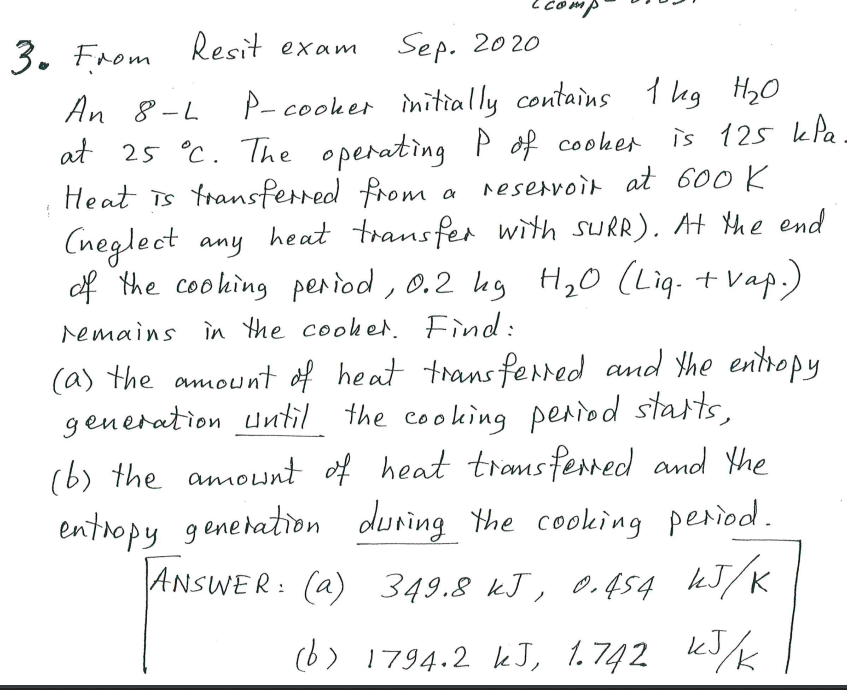 3. From Resit exam Sep. 2020
An 8-L P-cooker initially contains 1 kg H₂O
at 25 °C. The operating P of cooker is 125 kPa.
Heat is transferred from a reservoir at 600 K
(neglect any heat transfer with SURR). At the end
of the cooking period, 0.2 kg H₂O (Liq. + Vap.)
remains in the cooker. Find:
(a) the amount of heat transferred and the entropy
generation until the cooking period starts,
(b) the amount of heat transferred and the
entropy generation during the cooking period.
ANSWER: (a) 349.8 kJ, 0.454 kJ/K
(b) 1794.2 kJ, 1.742 kJ/K